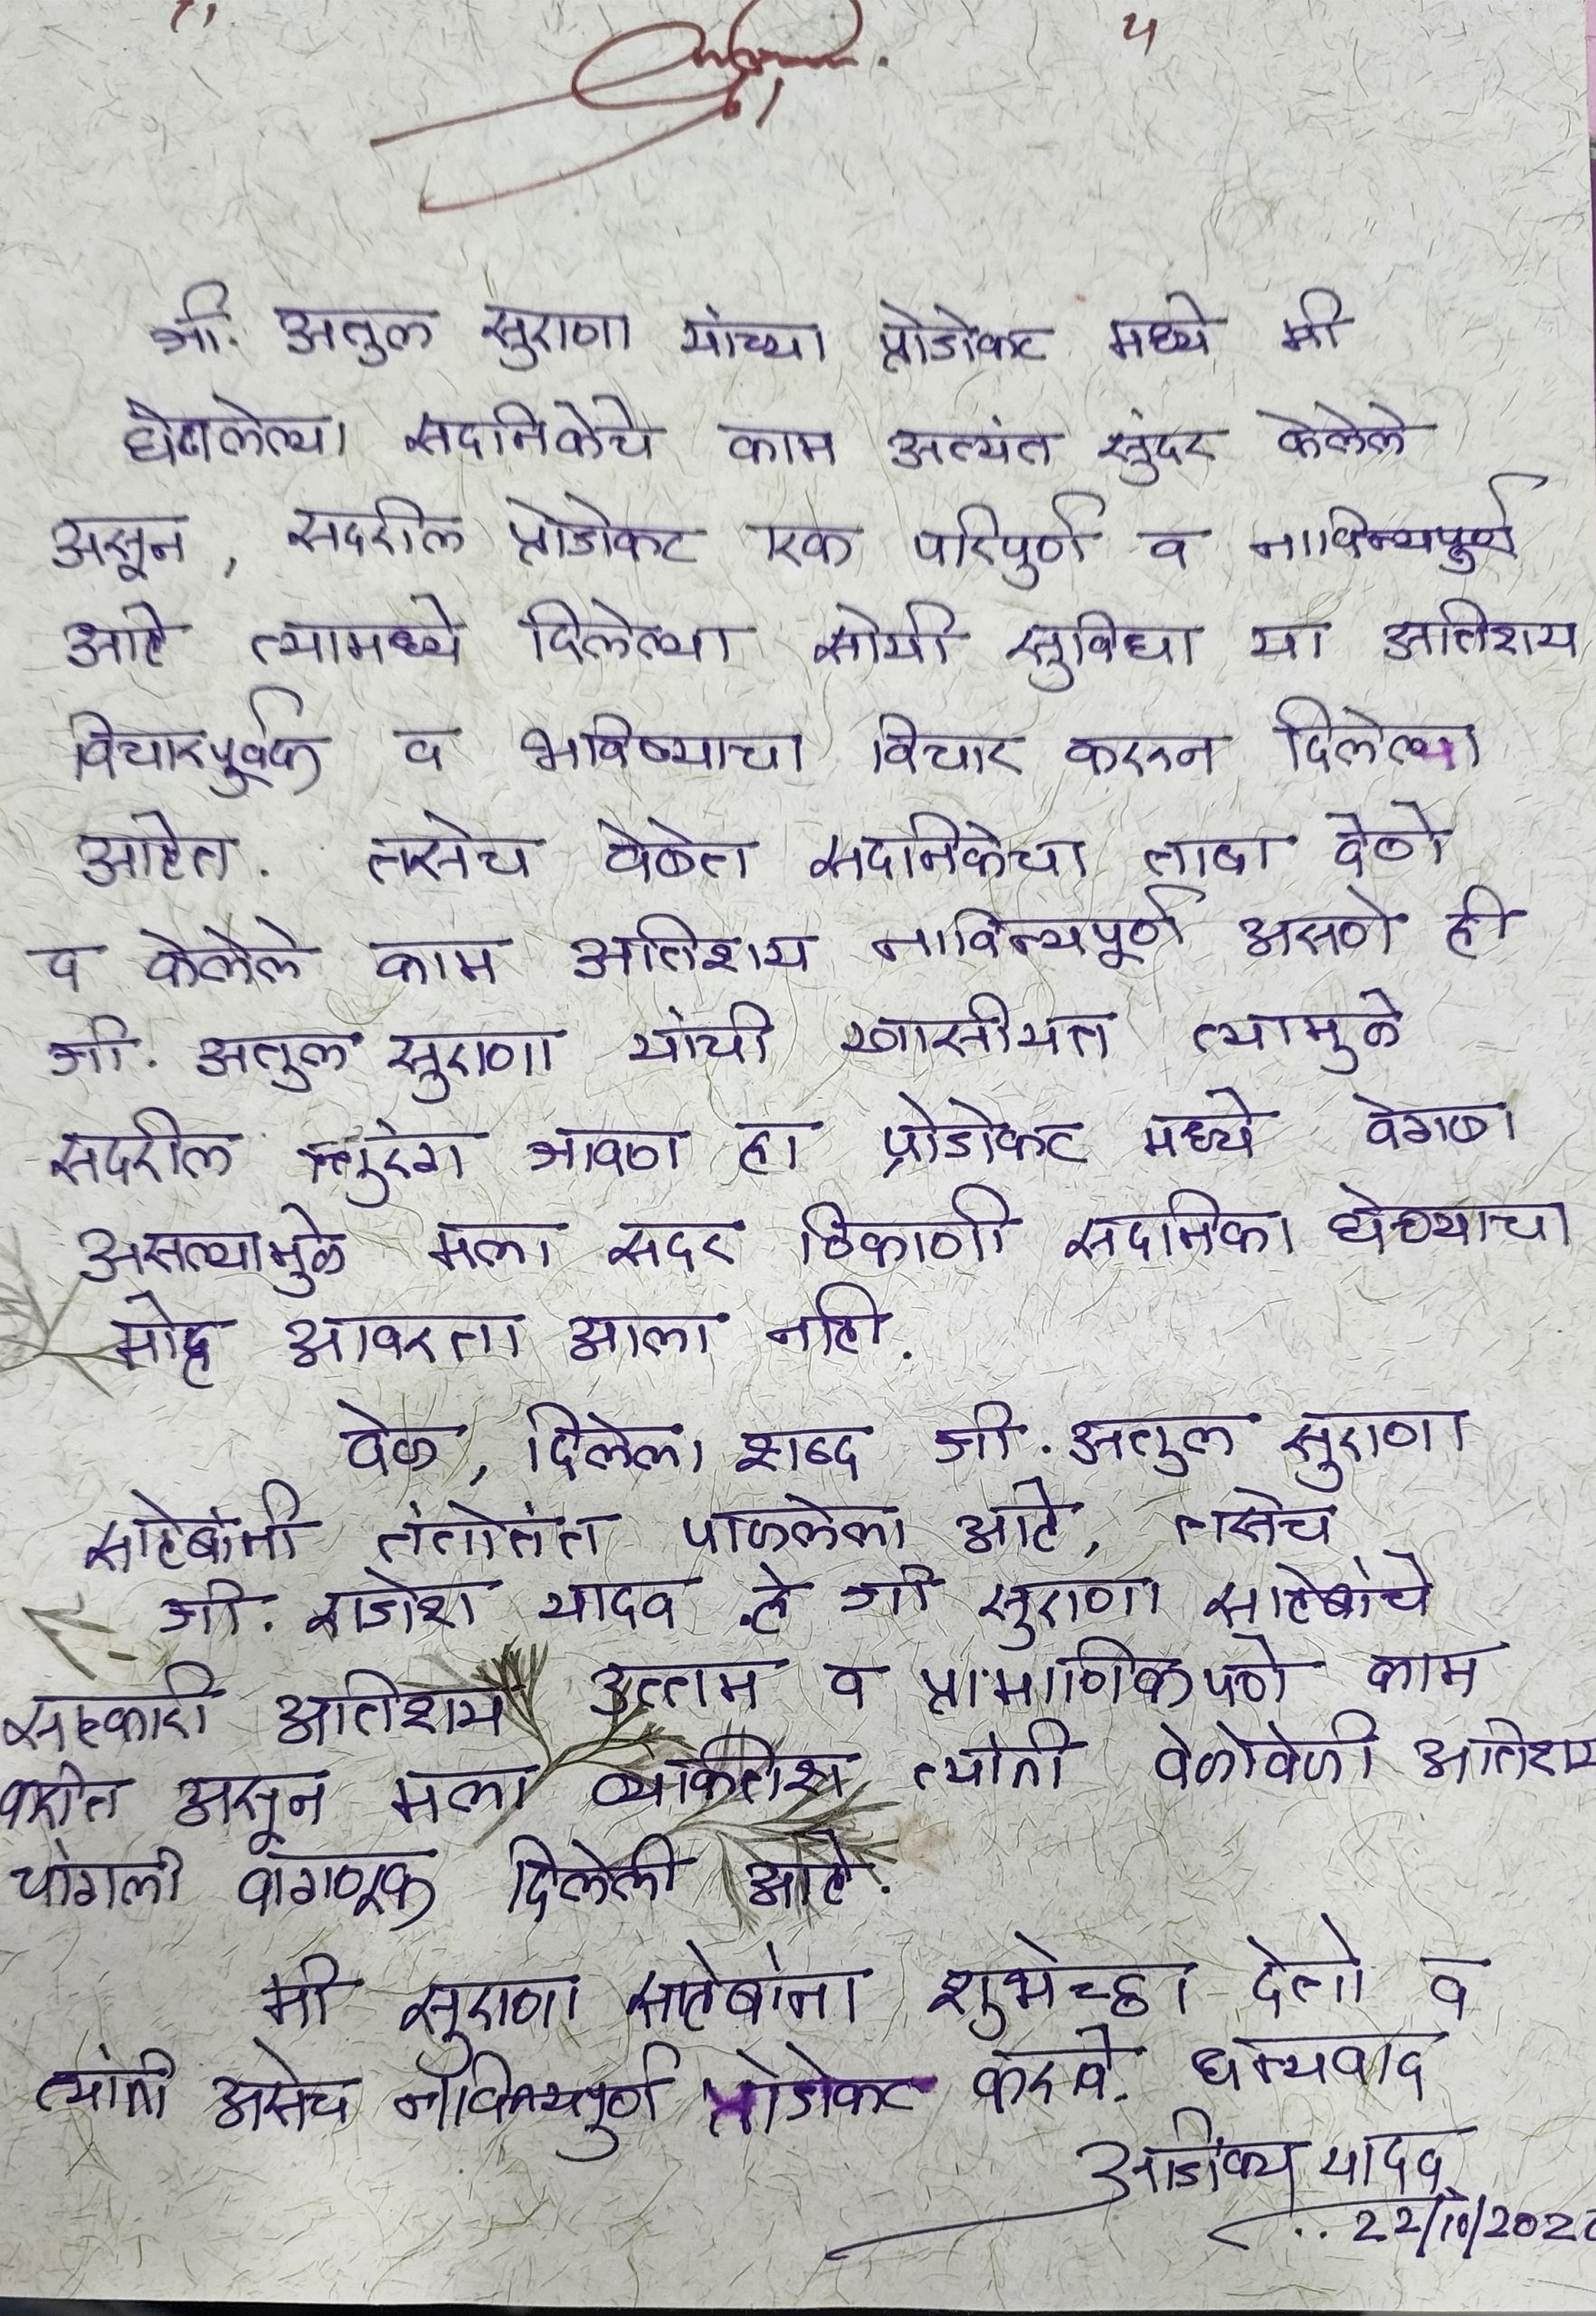 ५
श्री. अतुल सुराणा यांच्या प्रोजेक्ट मध्ये मी
घेतलेल्या सदनिकेचे काम अत्यंत सुंदर केलेले
असून, सदरील प्रोजेक्ट एक परिपुर्ण व नाविन्यपुर्ण
आहे त्यामध्ये दिलेल्या सोयी सुविधा या अतिशय
विचारपूर्वक व भविष्याचा विचार करुन दिलेल्या
आहेत. तसेच वेळेत सदनिकेचा ताबा देणे
व केलेले काम अतिशय नाविन्यपूर्ण असणे ही
श्री. अतुल सुराणा यांची खासीयत त्यामुळे
सदरील श्रावण हा प्रोजेक्ट मध्ये वेगळा
असल्यामुळे मला सदर ठिकाणी सदनिका घेण्याचा
मोह आवरता आला नाही.
वेळ, दिलेला शब्द श्री. अतुल सुराणा
साहेबांनी तंतोतंत पाळलेला आहे, तसेच
श्री. राजेश यादव हे श्री सुराणा साहेबांचे
सहकारी अतिशय उत्तम व प्रामाणिकपणे काम
करीत असून मला व्यक्तिश त्यांनी वेळोवेळी अतिशय
चांगली वागणूक दिलेली आहे.
मी सुराणा साहेबांना शुभेच्छा देतो व
त्यांनी असेच नाविन्यपुर्ण प्रोजेक्ट करावे. धन्यवाद
अजिंक्य यादव
22/10/202